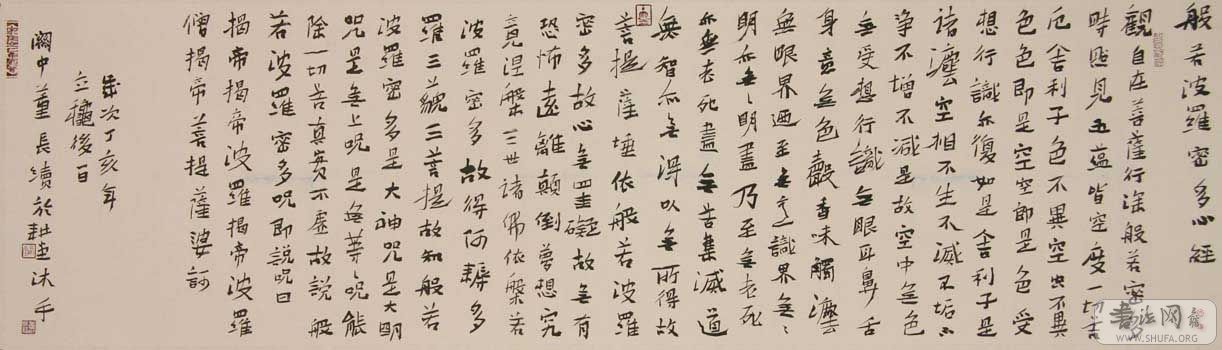 般若波羅密多心經
觀自在菩薩行深般若密多
時照見五蘊皆空度一切苦
厄舍利子色不異空空不異
色色即是空空即是色受
想行識亦復如是舍利子是
諸灋空相不生不滅不垢不
淨不增不減是故空中無色
無受想行識無眼耳鼻舌
身意無色聲香味觸灋
無眼界迺至無意識界無〻
明亦無〻明盡乃至無老死
亦無老死盡無苦集滅道
無智亦無淂以無所得故
菩提薩埵依般若波羅
密多故心無罣礙故無有
恐怖遠離顛倒夢想究
竟涅槃三世諸佛依槃若
波羅密多故得阿耨多
羅三藐三菩提故知般若
波羅密多是大神咒是大明
咒是無上咒是無等〻咒能
除一切苦真實不虛故說般
若波羅密多咒即說咒曰
揭帝揭帝波羅揭帝波羅
僧揭帝菩提薩婆訶
歲次丁亥年
立穐後一日
闕中董長續於
沐手
書法网
WWW.SHUFA.ORG